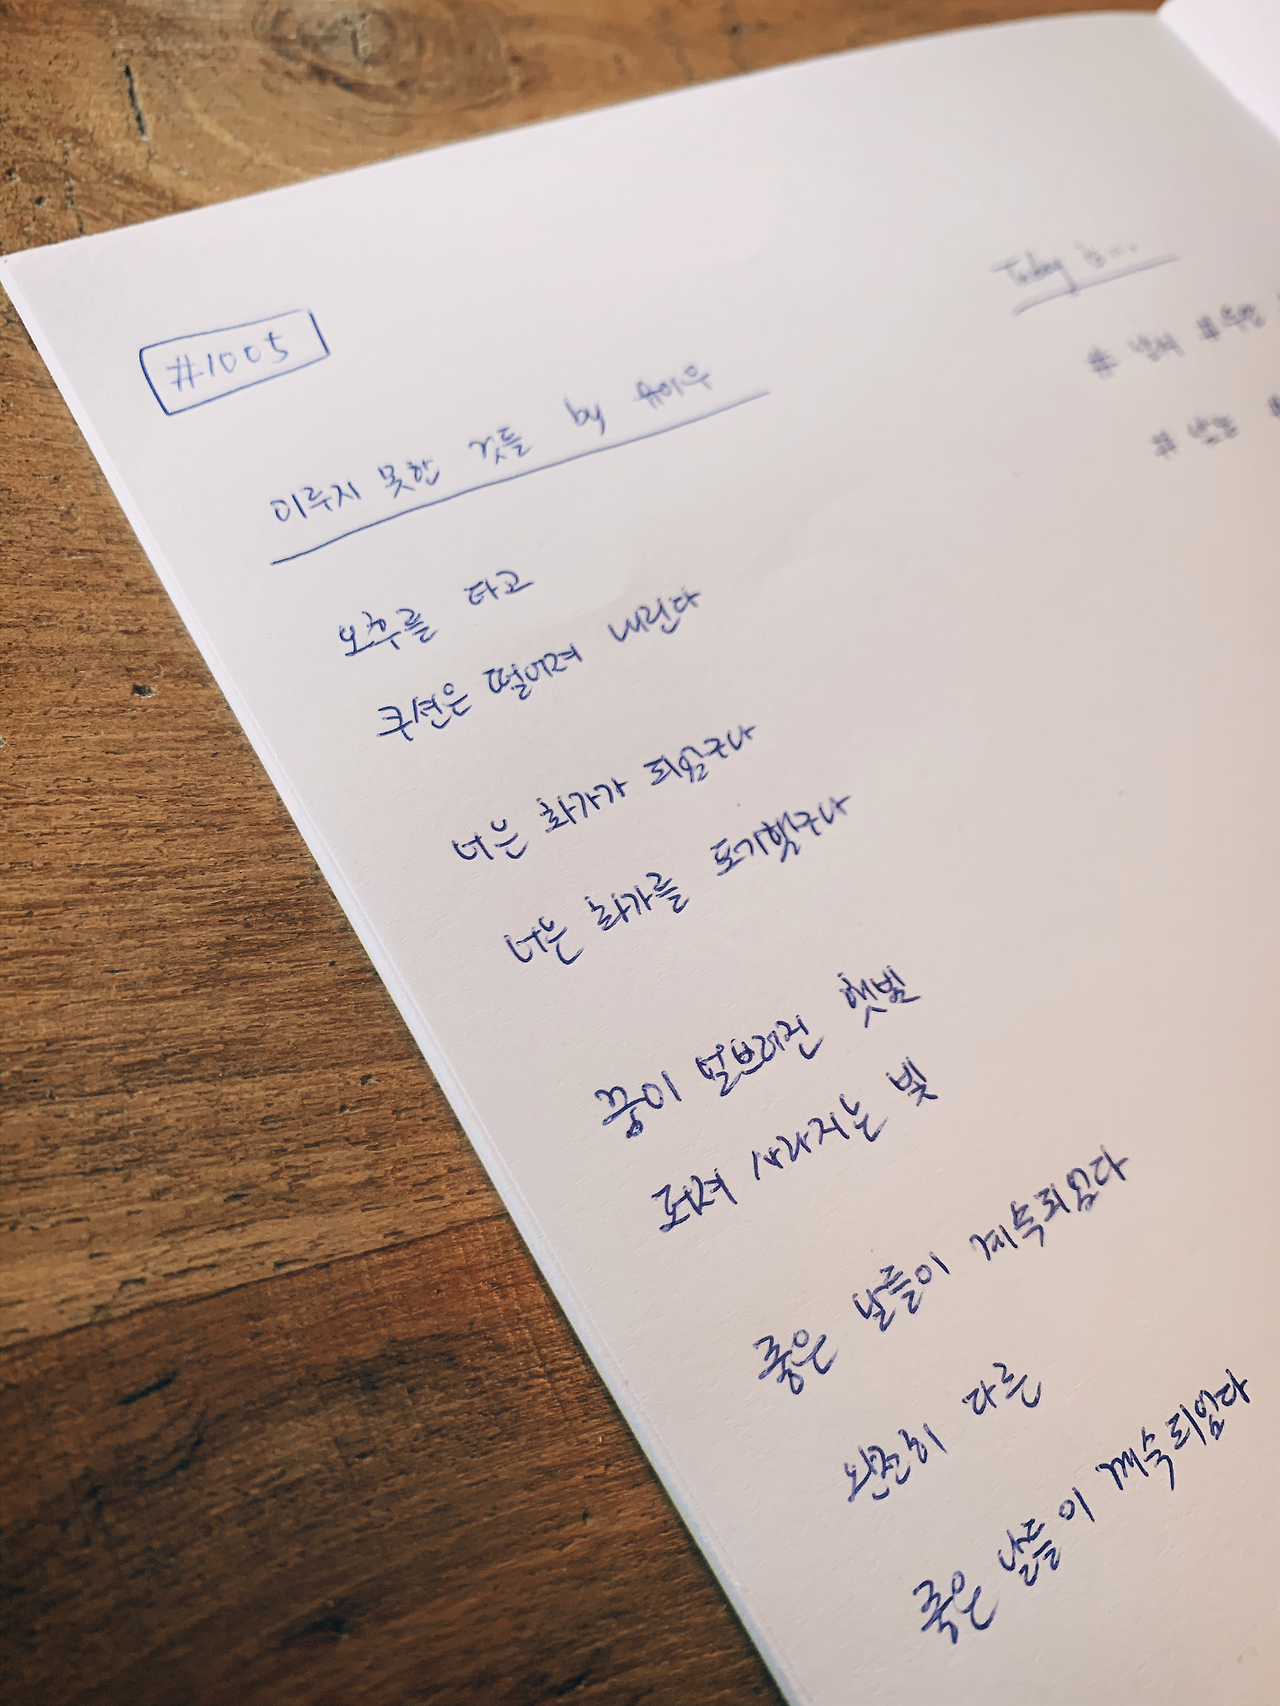 #1005
이루지 못한 것들 by 유이우
Today is...
오후를 타고
쿠션은 떨어져 내린다
너는 화가가 되었구나
너는 화가를 포기했구나
꿈이 햇빛
퍼져 사라지는 빛
좋은 날들이 계속되었다
완전히 다른
좋은 날들이 계속되었다